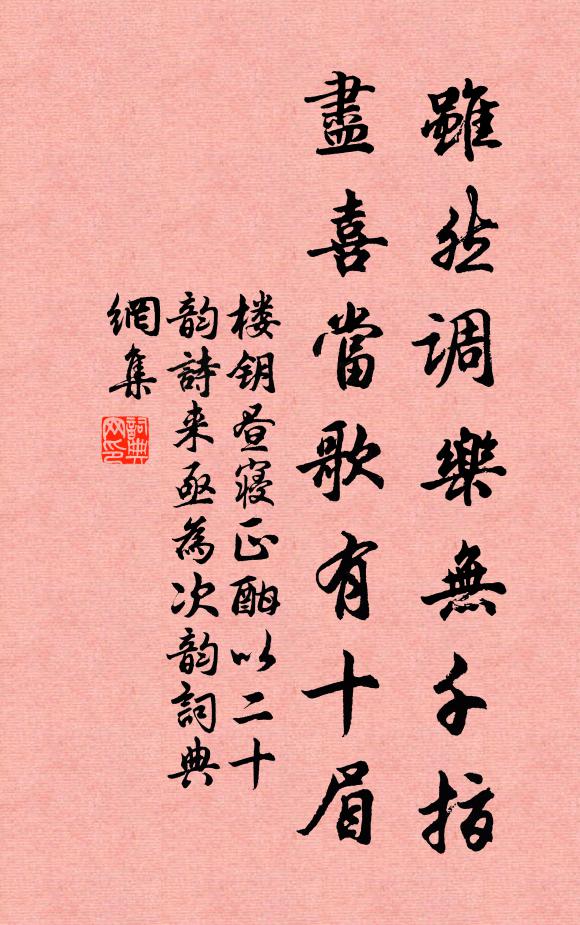 雖然調樂無千指
盡喜當歌有十眉
楼钥昼寝正酣以二十
韵詩来亟為次韵詞典
網集
詞典網印